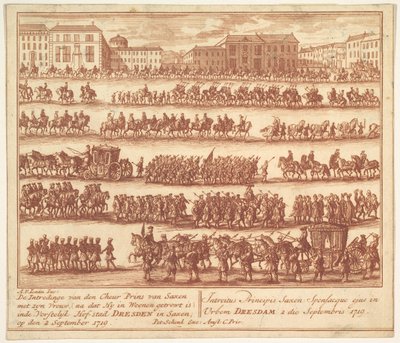 De Intredinge van den Cheur Prins van Saxen
met zyn Vrouw, na dat Hy in Weenen getrout is
inde Vorstelyk Hof stad DRESDEN in Saxen,
op den 2 September 1719.
Pet: Schenk Exc: Amst: C. Priv.
Introitus Principis Saxon Sponsaeque ejus in
Urbem DRESDAM. 2 die Septembris 1719.